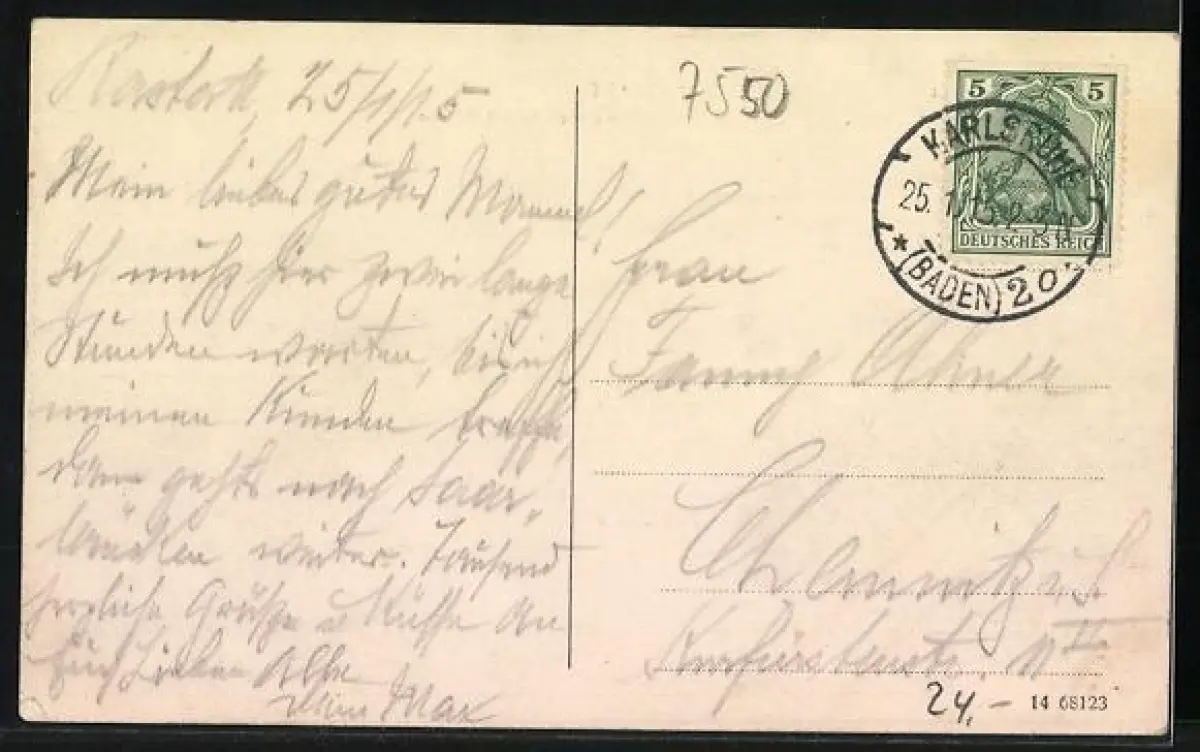 Rastatt, 25/1/15
Mein liebes gutes Mammel!
Ich muß hier zwei lange
Stunden warten, bis ich
meinen Kunden treffe,
dann gehts nach Saar-
weiter. Tausend
herzliche Grüße u Küsse an
Euch Lieben Alle
Max
7550
5 5
DEUTSCHES REICH
KARLSRUHE
25. 1. 15. 2-3 N
* (BADEN) 20
Frau
Fanny
Chemnitz i/S
II
24,-
14 68123